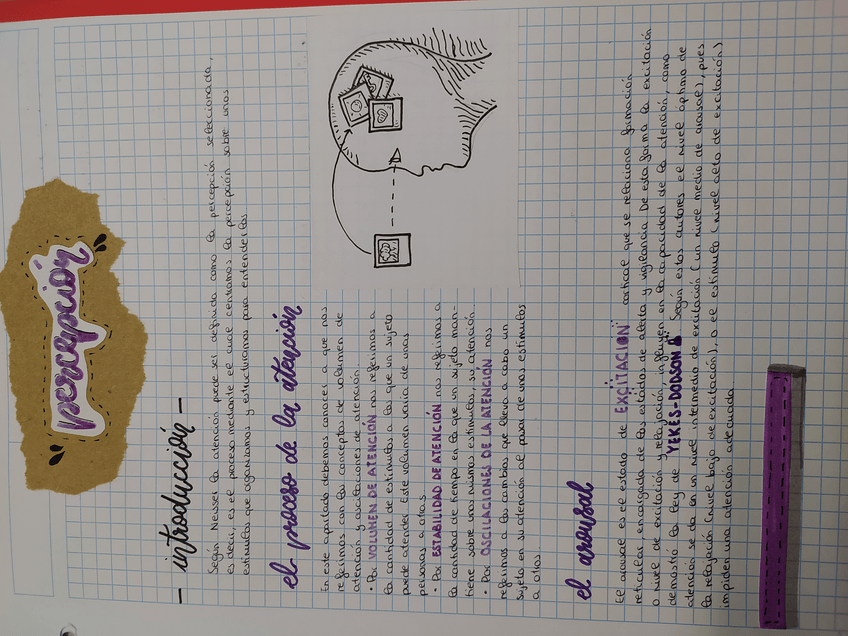 percepción
— introducción —
Según Neisser la atención puede ser definida como la percepción seleccionada,
es decir, es el proceso mediante el cual centramos la percepción sobre unos
estímulos que organizamos y estructuramos para entenderlos.
el proceso de la atención
En este apartado debemos conocer a que nos
referimos con los conceptos de volumen de
atención y oscilaciones de atención.
• Por VOLUMEN DE ATENCIÓN nos referimos a
la cantidad de estímulos a la que un sujeto
puede atender. Este volumen varía de unas
personas a otras.
• Por ESTABILIDAD DE ATENCIÓN nos referimos a
la cantidad de tiempo en la que un sujeto man-
tiene sobre unos mismos estímulos, su atención.
• Por OSCILACIONES DE LA ATENCIÓN nos
referimos a los cambios que lleva a cabo un
sujeto en su atención al pasar de unos estímulos
a otros.
el arousal
El arousal es el estado de EXCITACIÓN cortical que se relaciona formación
reticular, encargada de los estados de alerta y vigilancia. De esta forma la excitación
o nivel de excitación y relajación, influyen en la capacidad de la atención, como
demostró la ley de YEKES-DODSON. Según estos autores el nivel óptimo de
atención se da en un nivel intermedio de excitación (un nivel medio de arousal), pues
la relajación (nivel bajo de excitación), o el estímulo (nivel alto de excitación)
impiden una atención adecuada.